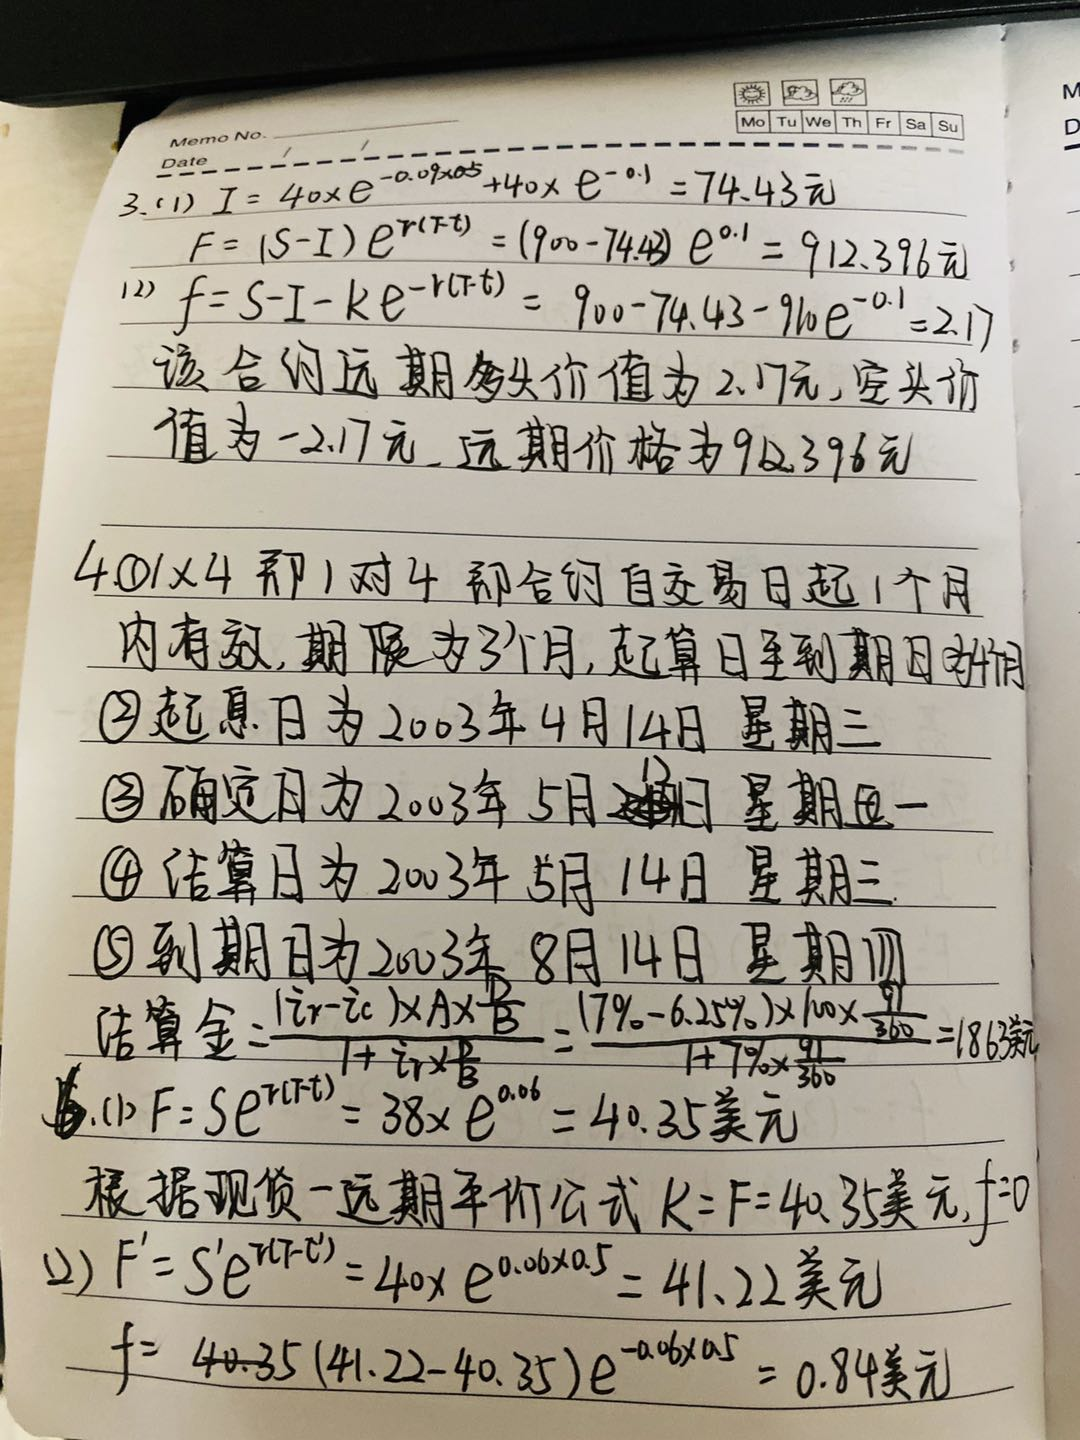 Memo No.
Mo Tu We Th Fr Sa Su
Date / /
3.(1) I = 40×e^{-0.09×0.5}+40×e^{-0.1} = 74.43元
F = (S-I)e^{r(T-t)} = (900-74.43)e^{0.1} = 912.396元
(2) f = S-I-ke^{-r(T-t)} = 900-74.43-910e^{-0.1} = 2.17
该合约远期多头价值为2.17元,空头价
值为-2.17元,远期价格为912.396元
4.①1×4 即1对4 即合约自交易日起1个月
内有效,期限为3个月,起算日至到期日为4个月
②起息日为2003年4月14日 星期三
③确定日为2003年5月12日 星期一
④结算日为2003年5月14日 星期三
⑤到期日为2003年8月14日 星期四
结算金=\frac{(ir-ic)×A×\frac{D}{B}}{1+ir×\frac{D}{B}}=\frac{(7%-6.25%)×100×\frac{91}{360}}{1+7%×\frac{91}{360}}=1863美元
5.(1) F=Se^{r(T-t)}=38×e^{0.06}=40.35美元
根据现货-远期平价公式 K=F=40.35美元,f=0
(2) F'=S'e^{r(T-t')}=40×e^{0.06×0.5}=41.22美元
f= (41.22-40.35)e^{-0.06×0.5}=0.84美元